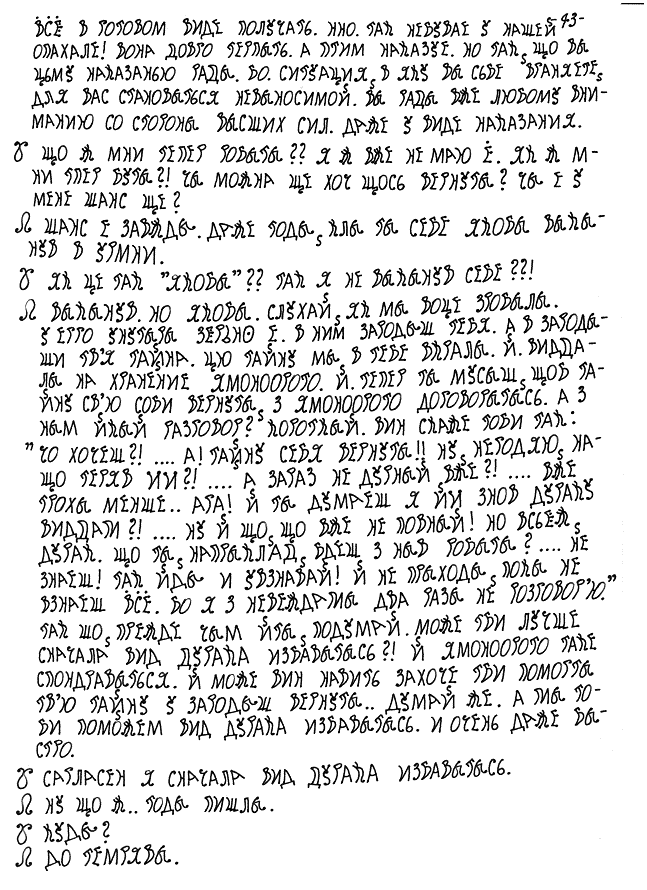 ВСЁ В ГОТОВОМ ВИДЕ ПОЛУЧАТЬ. ННО. ТАК НЕБУВАЕ У НАШЕЙ -43-
ОПАХАЛЕ! ВОНА ДОВГО ТЕРПИТЬ. А ПТИМ НАКАЗУЕ. НО ТАК, ЩО ВИ
ЦЬМУ НАКАЗАНЬЮ РАДИ. БО. СИТУАЦИЯ, В ЯКУ ВИ СЬБЕ ВГАНЯЕТЕ,
ДЛЯ ВАС СТАНОВИТЬСЯ НЕВИНОСИМОЙ. ВИ РАДИ ВЖЕ ЛЮБОМУ ВНИ-
МАНИЮ СО СТОРОНИ ВИСШИХ СИЛ. ДАЖЕ У ВИДЕ НАКАЗАНИЯ.
♈ ЩО Ж МНИ ТЕПЕР РОБИТИ?? Я Ж ВЖЕ НЕ МАЮ Ё. ЯК Ж М-
НИ ТПЕР БУТИ?! ЧИ МОЖНА ЩЕ ХОЧ ЩОСЬ ВЕРНУТИ? ЧИ Е У
МЕНЕ ШАНС ЩЕ?
♌ ШАНС Е ЗАВЖДИ. ДАЖЕ ТОДИ, КЛИ ТИ СЕБЕ ЯКОБИ ВИКИ-
НУВ В УРМНИ.
♈ ЯК ЦЕ ТАК "ЯКОБИ"?? ТАК Я НЕ ВИКИНУВ СЕБЕ??!
♌ ВИКИНУВ. НО ЯКОБИ. СЛУХАЙ, ЯК МИ ВОЦЕ ЗРОБИЛИ.
У ЕГГО УНУТАРА ЗЕРНО Е. В НИМ ЗАРОДИШ ТЕБЯ. А В ЗАРОДИ-
ШИ ТВ'Я ТАЙНА. ЦЮ ТАЙНУ МИ, В ТЕБЕ ВКРАЛИ. Й. ВИДДА-
ЛИ НА ХРАНЕНИЕ ЯМОНООРОТО. Й. ТЕПЕР ТИ МУСИШ, ЩОБ ТА-
ЙНУ СВ'Ю СОБИ ВЕРНУТИ, З ЯМОНООРОТО ДОГОВОРИТИСЬ. А З
НИМ ЙКИЙ РАЗГОВОР? КОРОТКИЙ. ВИН СКАЖЕ ТОБИ ТАК:
"ЧО ХОЧЕШ?! .... А! ТАЙНУ СЕБЯ ВЕРНУТИ!! НУ, НЕГОДЯЮ, НА-
ЩО ТЕРЯВ ИИ?! .... А ЗАРАЗ НЕ ДУРНЫЙ ВЖЕ?! .... ВЖЕ
ТРОХЫ МЕНШЕ.. АГА! Й ТИ ДУМАЕШ Я ЙИ ЗНОВ ДУРАКУ
ВИДДАМ?! .... НУ Й ЩО, ЩО ВЖЕ НЕ ПОВНЫЙ! НО ВСЬЕЖ,
ДУРАК. ЩО ТИ, НАПРИКЛАД, БДЕШ З НЫВ РОБИТИ? .... НЕ
ЗНАЕШ! ТАК ЙДИ И УВЗНАВАЙ! Й НЕ ПРИХОДИ, ПОКЫ НЕ
ВЗНАЕШ ВСЁ. БО Я З НЕВЕЖДАМИ ДВА РАЗЫ НЕ РОЗГОВОР'Ю."
ТАК ШО, ПРЕЖДЕ ЧЫМ ЙТИ, ПОДУМАЙ. МОЖЕ ТБИ ЛУЧШЕ
СНАЧАЛА ВИД ДУРАКА ИЗБАВИТИСЬ?! Й ЯМОНООРОТО ТАКЕ
СПОНДРАВИТЬСЯ. Й МОЖЕ ВИН НАВИТЬ ЗАХОЧЕ ТБИ ПОМОГТИ
ТВ'Ю ТАЙНУ У ЗАРОДИШ ВЕРНУТИ.. ДУМАЙ ЖЕ. А МИ ТО-
БИ ПОМОЖЕМ ВИД ДУРАКА ИЗБАВИТИСЬ. И ОЧЕНЬ ДАЖЕ БИ-
СТРО.
♈ САГЛАСЕН Я СНАЧАЛА ВИД ДУРАКА ИЗБАВИТИСЬ.
♌ НУ ЩО Ж.. ТОДИ ПИШЛИ.
♈ КУДЫ?
♌ ДО ТЕМРЯВИ.